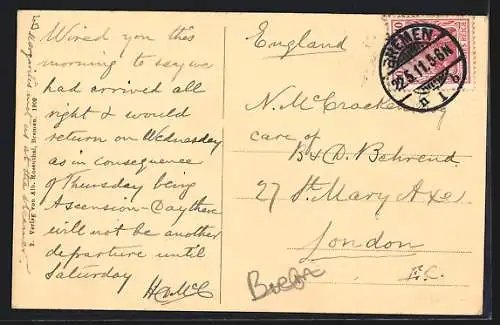 Wired you this
morning to say we
had arrived all
right & would
return on Wednesday
as in consequence
of Thursday being
Ascension-Day there
will not be another
departure until
Saturday
HMcC
2. Verlag von Alb. Rosenthal, Bremen. 1909
England
N. McCrackenburg
care of
B & D. Behrend
27 St. Mary Axe
London
E.C.
BREMEN
22.5.11.5-6N
n 1 b